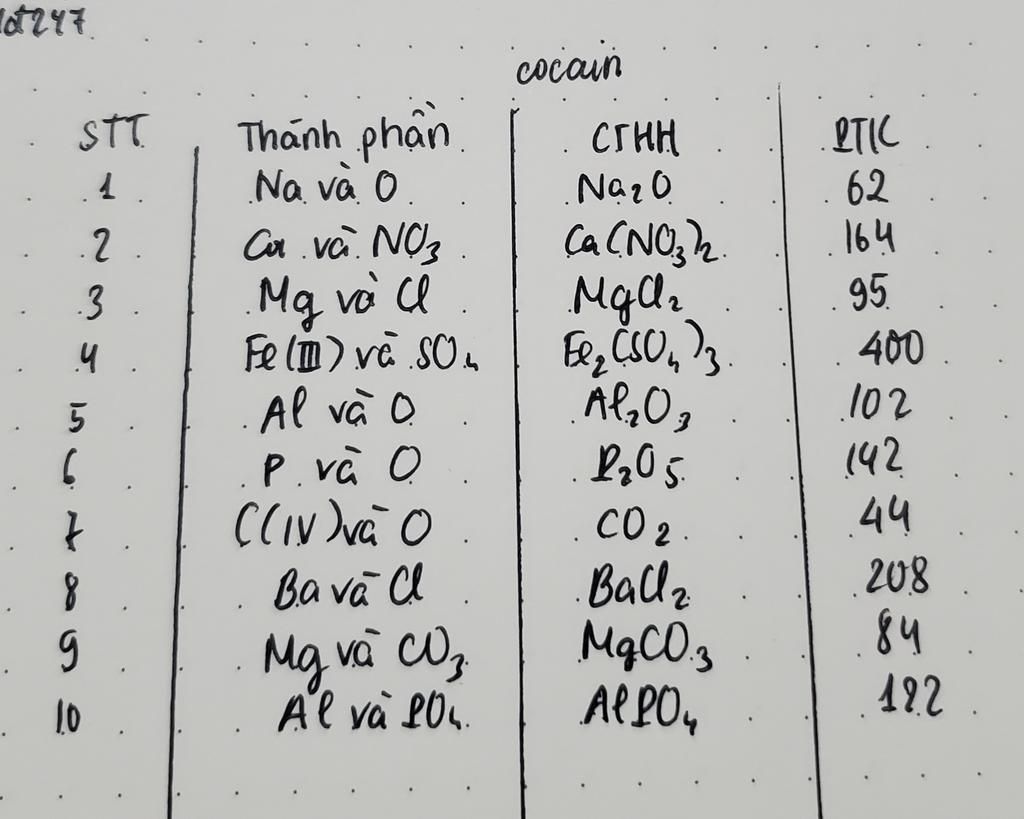 lot247
cocain
STT Thành phần CTHH PTK
1 Na và O Na₂O 62
2 Ca và NO₃ Ca(NO₃)₂ 164
3 Mg và Cl MgCl₂ 95
4 Fe(III) và SO₄ Fe₂(SO₄)₃ 400
5 Al và O Al₂O₃ 102
6 P và O P₂O₅ 142
7 C(IV) và O CO₂ 44
8 Ba và Cl BaCl₂ 208
9 Mg và CO₃ MgCO₃ 84
10 Al và PO₄ AlPO₄ 122